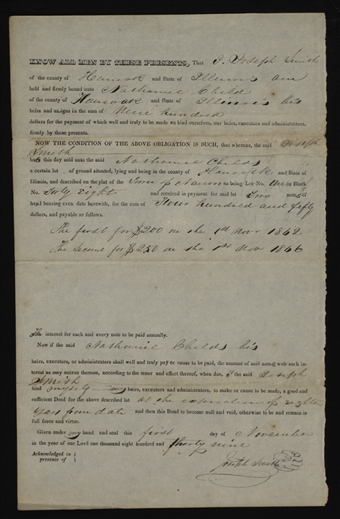 KNOW ALL MEN BY THESE PRESENTS, That I, Joseph Smith
of the county of Hancock and State of Illinois am
held and firmly bound unto Nathaniel Childs
of the county of Hancock and State of Illinois his
heirs and assigns in the sum of Nine hundred
dollars for the payment of which well and truly to be made we bind ourselves, our heirs, executors and administrators,
firmly by these presents.
NOW THE CONDITION OF THE ABOVE OBLIGATION IS SUCH, that whereas, the said Joseph
Smith
has this day sold unto the said Nathaniel Childs
a certain lot of ground situated, lying and being in the county of Hancock and State of
Illinois, and described on the plat of the Town of being Lot No. One in Block
No. Forty Eight and received in payment for said lot Two notes of
hand bearing even date herewith, for the sum of Four hundred and fifty
dollars, and payable as follows.
The first for $200 on the 1st Nov 1842
The second for $250 on the 1st Nov
The interest for each and every note to be paid annually.
Now if the said Nathaniel Childs his
heirs, executors, or administrators shall well and truly pay or cause to be paid, the amount of said notes with such interest as may accrue thereon, according to the tenor and effect thereof, when due, I the said Joseph
Smith
bind myself my heirs, executors and administrators, to make or cause to be made, a good and
sufficient Deed for the above described lot at the expiration of
years from date and then this Bond to become null and void, otherwise to be and remain in
full force and virtue.
Given under my hand and seal this first day of November
in the year of our Lord one thousand eight hundred and thirty nine
Acknowledged in
presence of
Joseph Smith